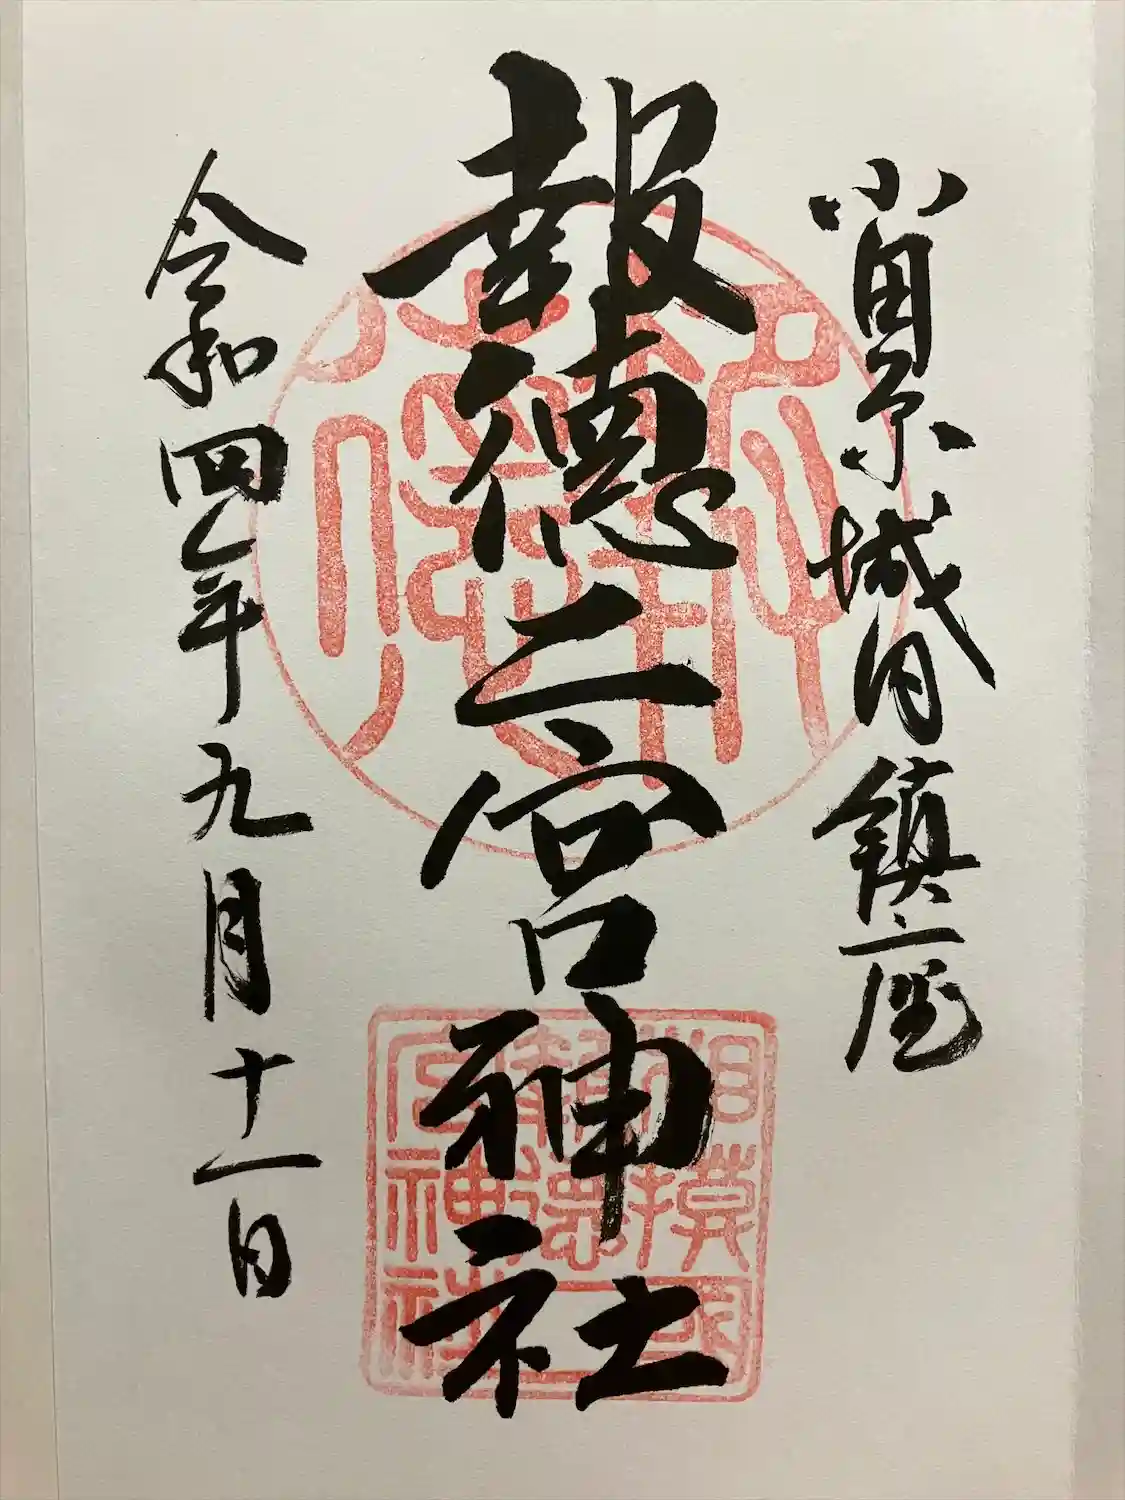 小田原城内鎮座
報徳二宮神社
令和四年九月十一日
相模國
報徳二
宮神社